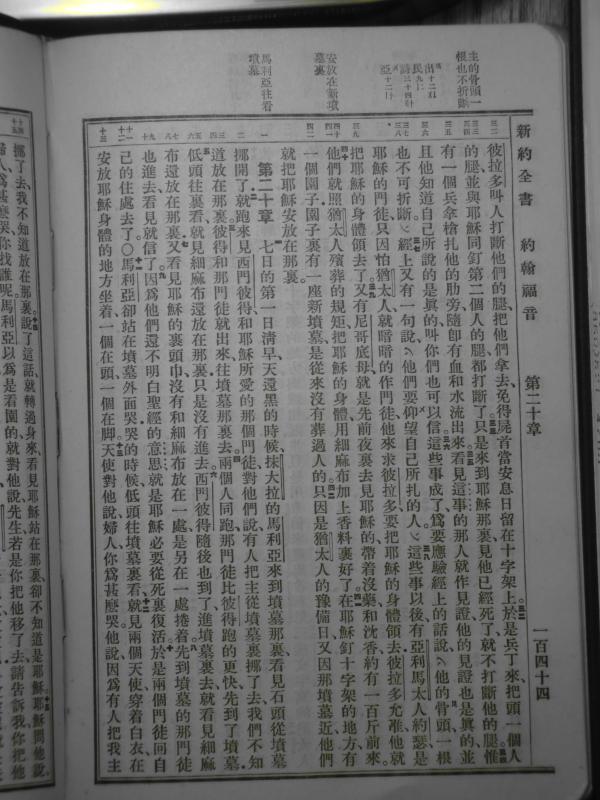 新約全書 約翰福音 第二十章 一百四十四
主的骨頭一
根也不折斷
出十二
民九
詩三十四
亞十二
安放在新墳
墓裏
馬利亞往看
墳墓
彼拉多叫人打斷他們的腿把他們拿去免得屍首當安息日留在十字架上於是兵丁來把頭一個人
的腿並與耶穌同釘第二個人的腿都打斷了只是來到耶穌那裏見他已經死了就不打斷他的腿惟
有一個兵拿槍扎他的肋旁隨卽有血和水流出來看見這事的那人就作見證他的見證也是真的並
且他知道自己所說的是真的叫你們也可以信這些事成了爲要應驗經上的話說他的骨頭一根
也不可折斷經上又有一句說他們要仰望自己所扎的人這些事以後有亞利馬太人約瑟是
耶穌的門徒只因怕猶太人就暗暗的作門徒他來求彼拉多要把耶穌的身體領去彼拉多允准他就
把耶穌的身體領去了又有尼哥底母就是先前夜裏去見耶穌的帶着沒藥和沈香約有一百斤前來
他們就照猶太人殯葬的規矩把耶穌的身體用細麻布加上香料裹好了在耶穌釘十字架的地方有
一個園子園子裏有一座新墳墓是從來沒有葬過人的只因是猶太人的豫備日又因那墳墓近他們
就把耶穌安放在那裏
第二十章 七日的第一日淸早天還黑的時候抹大拉的馬利亞來到墳墓那裏看見石頭從墳墓
挪開了就跑來見西門彼得和耶穌所愛的那個門徒對他們說有人把主從墳墓裏挪了去我們不知
道放在那裏彼得和那門徒就出來往墳墓那裏去兩個人同跑那門徒比彼得跑的更快先到了墳墓
低頭往裏看就見細麻布還放在那裏只是沒有進去西門彼得隨後也到了進墳墓裏去就看見細麻
布還放在那裏又看見耶穌的裹頭巾沒有和細麻布放在一處是另在一處捲着先到墳墓的那門徒
也進去看見就信了因爲他們還不明白聖經的意思就是耶穌必要從死裏復活於是兩個門徒回自
己的住處去了〇馬利亞卻站在墳墓外面哭哭的時候低頭往墳墓裏看就見兩個天使穿着白衣在
安放耶穌身體的地方坐着一個在頭一個在脚天使對他說婦人你爲甚麽哭他說因爲有人把我主
挪了去我不知道放在那裏說了這話就轉過身來看見耶穌站在那裏卻不知道是耶穌耶穌問他說
婦人爲甚麽哭你找誰呢馬利亞以爲是看園的就對他說先生若是你把他移了去請告訴我你把他